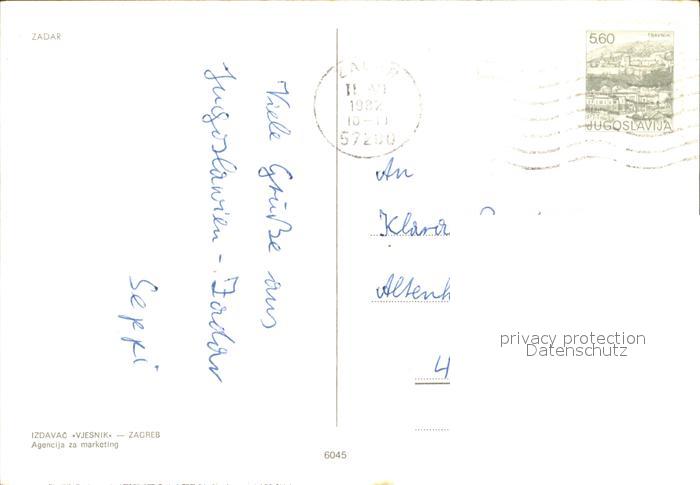 ZADAR
Viele Grüße aus
Jugoslawien - Zadar
Seppi
IZDAVAČ »VJESNIK« — ZAGREB
Agencija za marketing
6045
1982
10-11
57200
5.60
TRAVNIK
JUGOSLAVIJA
An
Klara
Altenh
4
privacy protection
Datenschutz